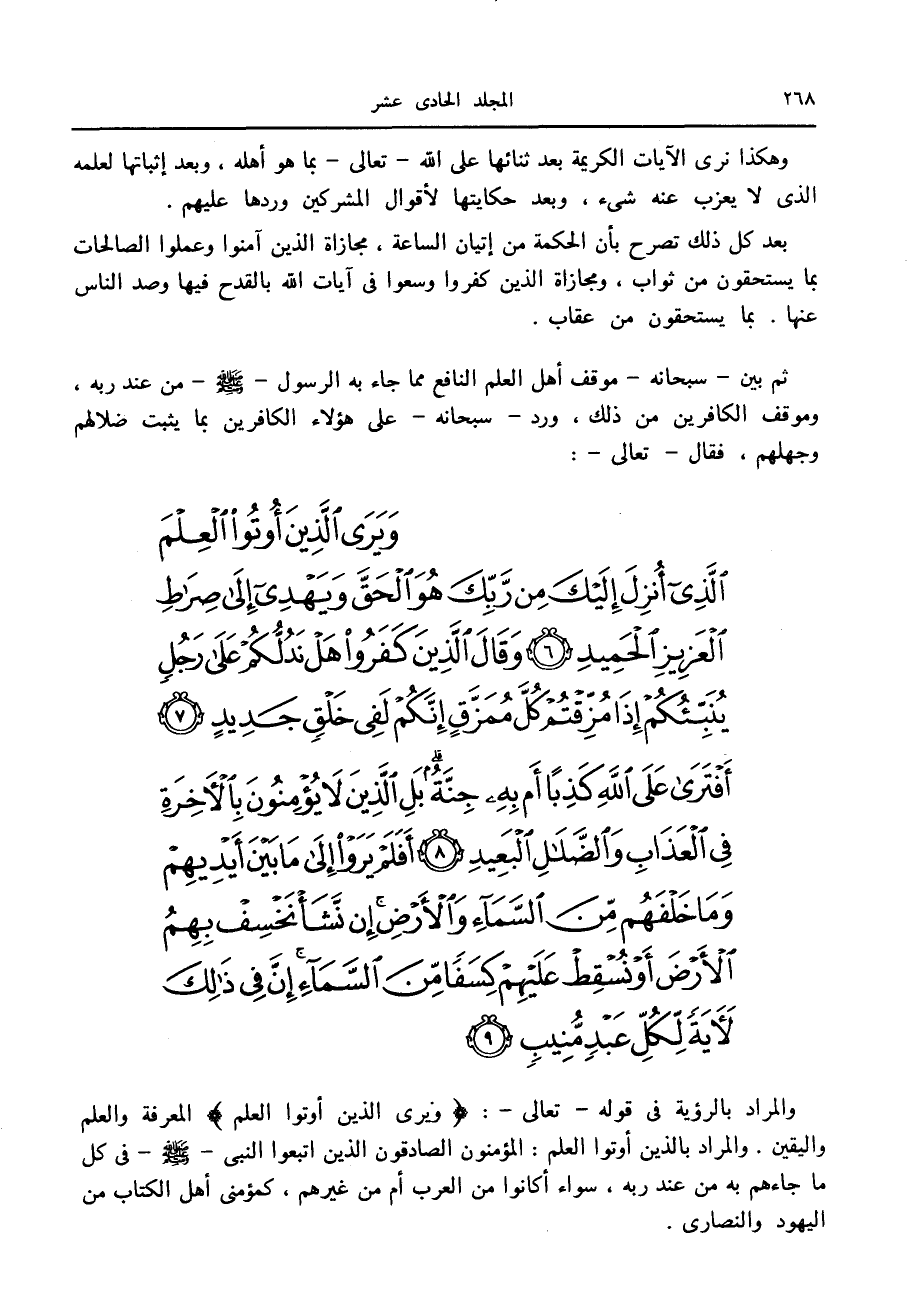 ٢٦٨ المجلد الحادى عشر
وهكذا نرى الآيات الكريمة بعد ثنائها على الله – تعالى – بما هو أهله ، وبعد إثباتها لعلمه
الذى لا يعزب عنه شىء ، وبعد حكايتها لأقوال المشركين وردها عليهم .
بعد كل ذلك تصرح بأن الحكمة من إتيان الساعة ، مجازاة الذين آمنوا وعملوا الصالحات
بما يستحقون من ثواب ، ومجازاة الذين كفروا وسعوا فى آيات الله بالقدح فيها وصد الناس
عنها . بما يستحقون من عقاب .
ثم بين – سبحانه – موقف أهل العلم النافع مما جاء به الرسول – ﷺ – من عند ربه ،
وموقف الكافرين من ذلك ، ورد – سبحانه – على هؤلاء الكافرين بما يثبت ضلالهم
وجهلهم ، فقال – تعالى – :
وَيَرَى ٱلَّذِينَ أُوتُوا۟ ٱلْعِلْمَ
ٱلَّذِىٓ أُنزِلَ إِلَيْكَ مِن رَّبِّكَ هُوَ ٱلْحَقَّ وَيَهْدِىٓ إِلَىٰ صِرَٰطِ
ٱلْعَزِيزِ ٱلْحَمِيدِ ﴿٦﴾ وَقَالَ ٱلَّذِينَ كَفَرُوا۟ هَلْ نَدُلُّكُمْ عَلَىٰ رَجُلٍ
يُنَبِّئُكُمْ إِذَا مُزِّقْتُمْ كُلَّ مُمَزَّقٍ إِنَّكُمْ لَفِى خَلْقٍ جَدِيدٍ ﴿٧﴾
أَفْتَرَىٰ عَلَى ٱللَّهِ كَذِبًا أَم بِهِۦ جِنَّةٌۢ ۗ بَلِ ٱلَّذِينَ لَا يُؤْمِنُونَ بِٱلْءَاخِرَةِ
فِى ٱلْعَذَابِ وَٱلضَّلَٰلِ ٱلْبَعِيدِ ﴿٨﴾ أَفَلَمْ يَرَوْا۟ إِلَىٰ مَا بَيْنَ أَيْدِيهِمْ
وَمَا خَلْفَهُم مِّنَ ٱلسَّمَآءِ وَٱلْأَرْضِ ۚ إِن نَّشَأْ نَخْسِفْ بِهِمُ
ٱلْأَرْضَ أَوْ نُسْقِطْ عَلَيْهِمْ كِسَفًا مِّنَ ٱلسَّمَآءِ ۚ إِنَّ فِى ذَٰلِكَ
لَءَايَةً لِّكُلِّ عَبْدٍ مُّنِيبٍ ﴿٩﴾
والمراد بالرؤية فى قوله – تعالى – : ﴿ ويرى الذين أوتوا العلم ﴾ المعرفة والعلم
واليقين . والمراد بالذين أوتوا العلم : المؤمنون الصادقون الذين اتبعوا النبى – ﷺ – فى كل
ما جاءهم به من عند ربه ، سواء أكانوا من العرب أم من غيرهم ، كمؤمنى أهل الكتاب من
اليهود والنصارى .